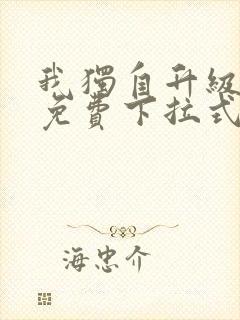 我獨自升級
免費下拉式
海忠介